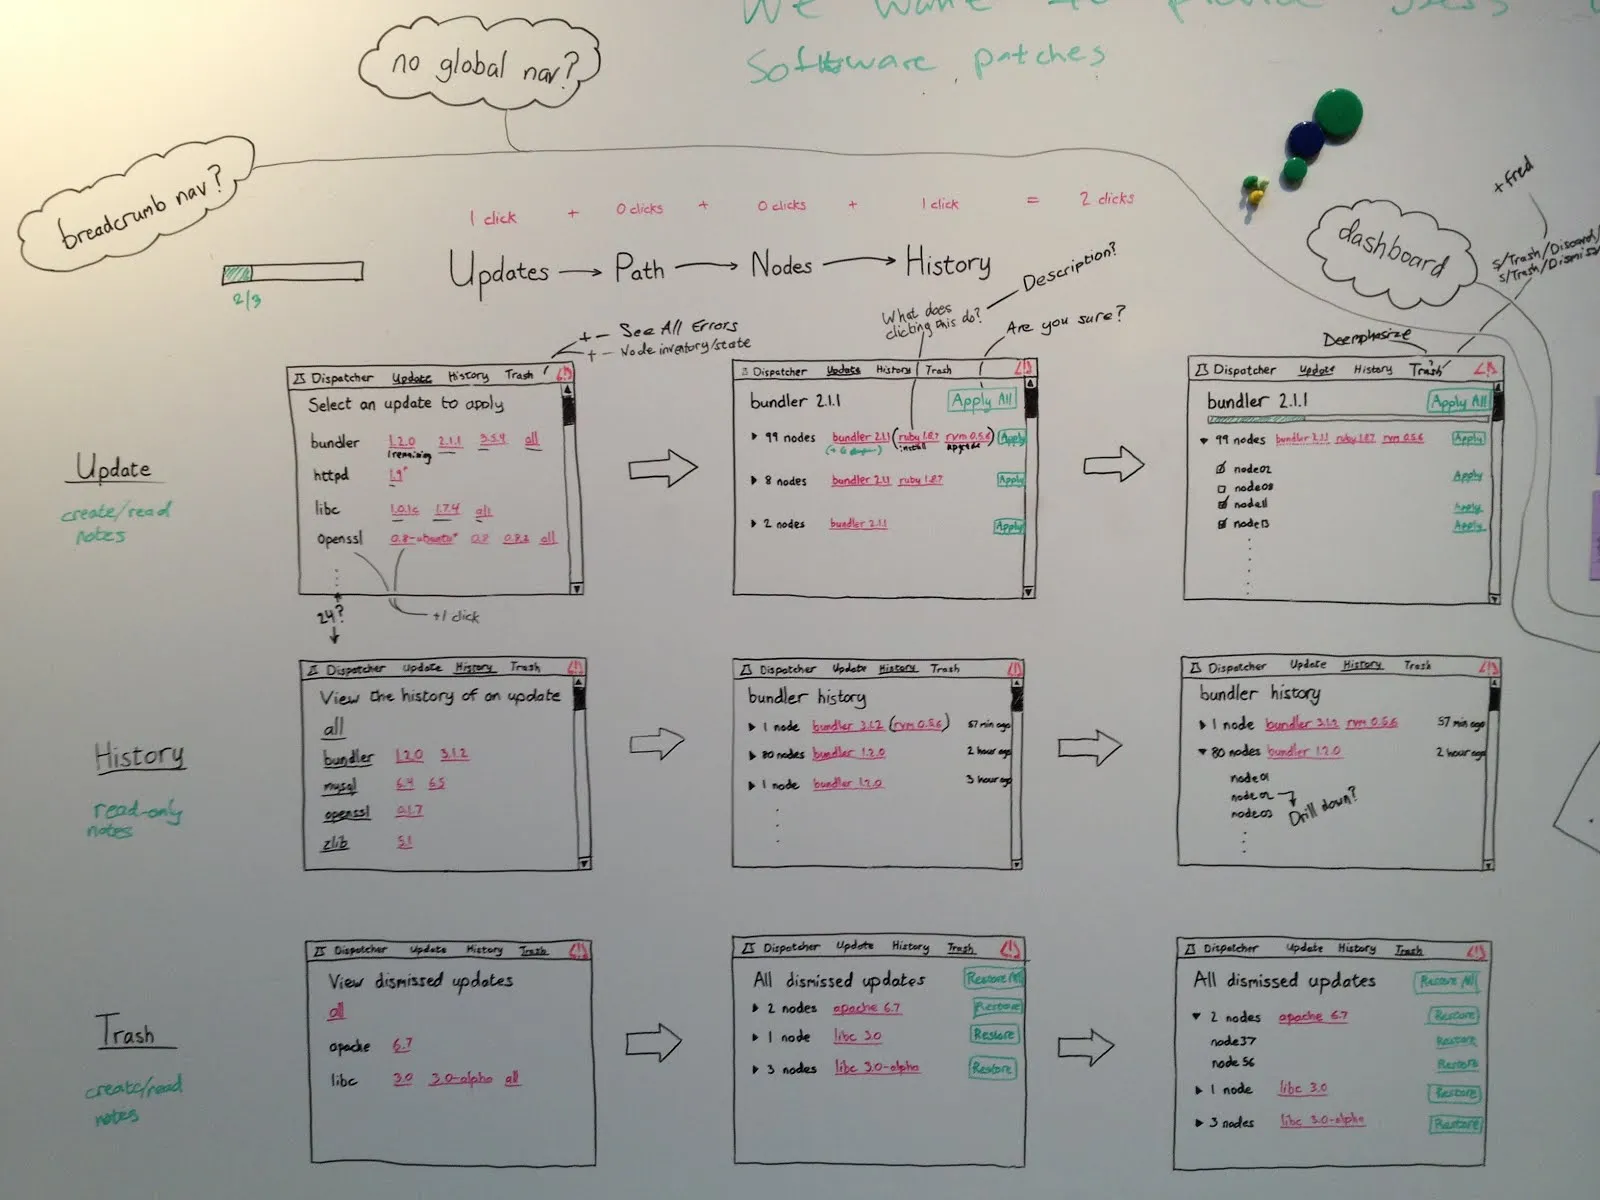 We want to provide users
Software patches
no global nav?
breadcrumb nav?
dashboard
+fred
s/Trash/Discard/
s/Trash/Dismiss/
1 click + 0 clicks + 0 clicks + 1 click = 2 clicks
Updates → Path → Nodes → History
2/3
Description?
What does
clicking this do?
Are you sure?
+ — See All Errors
+ — Node inventory/state
Deemphasize
Update
create/read
notes
Dispatcher Update History Trash
Select an update to apply
bundler 1.2.0 2.1.1 3.5.4 all
1 remaining
httpd 1.9*
libc 1.0.1c 1.7.4 all
Openssl 0.8-ubuntu* 0.8 0.8.2 all
24?
+1 click
Dispatcher Update History Trash
bundler 2.1.1 Apply All
99 nodes bundler 2.1.1 (ruby 1.8.7 rvm 0.5.6) Apply
install upgrade
8 nodes bundler 2.1.1 ruby 1.8.7 Apply
2 nodes bundler 2.1.1 Apply
Dispatcher Update History Trash
bundler 2.1.1 Apply All
99 nodes bundler 2.1.1 ruby 1.8.7 rvm 0.5.6 Apply
node02 Apply
node08
node11 Apply
node13 Apply
History
read-only
notes
Dispatcher Update History Trash
View the history of an update
all
bundler 1.2.0 3.1.2
mysql 6.4 6.5
openssl 0.1.7
zlib 5.1
Dispatcher Update History Trash
bundler history
1 node bundler 3.1.2 (rvm 0.5.6) 57 min ago
80 nodes bundler 1.2.0 2 hour ago
1 node bundler 1.2.0 3 hour ago
Dispatcher Update History Trash
bundler history
1 node bundler 3.1.2 rvm 0.5.6 57 min ago
80 nodes bundler 1.2.0 2 hour ago
node01
node02
node03
Drill down?
Trash
create/read
notes
Dispatcher Update History Trash
View dismissed updates
all
apache 6.7
libc 3.0 3.0-alpha all
Dispatcher Update History Trash
All dismissed updates Restore All
2 nodes apache 6.7 Restore
1 node libc 3.0 Restore
3 nodes libc 3.0-alpha Restore
Dispatcher Update History Trash
All dismissed updates Restore All
2 nodes apache 6.7 Restore
node37 Restore
node56 Restore
1 node libc 3.0 Restore
3 nodes libc 3.0-alpha Restore